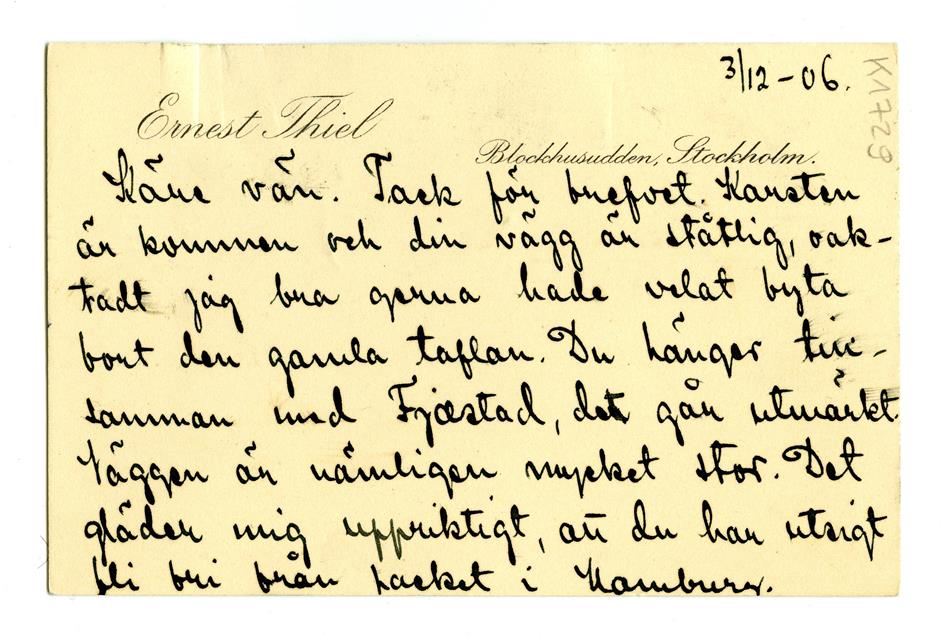 3/12 - 06.
K1729
Ernest Thiel
Blockhusudden, Stockholm.
Käre vän. Tack för brefvet. Karsten
är kommen och din vägg är ståtlig, oak-
tadt jag bra gerna hade velat byta
bort den gamla taflan. Du hänger till-
samman med Fjæstad, det går utmärkt
Väggen är nämligen mycket stor. Det
gläder mig uppriktigt, att du har utsigt
bli fri från packet i Hamburg.